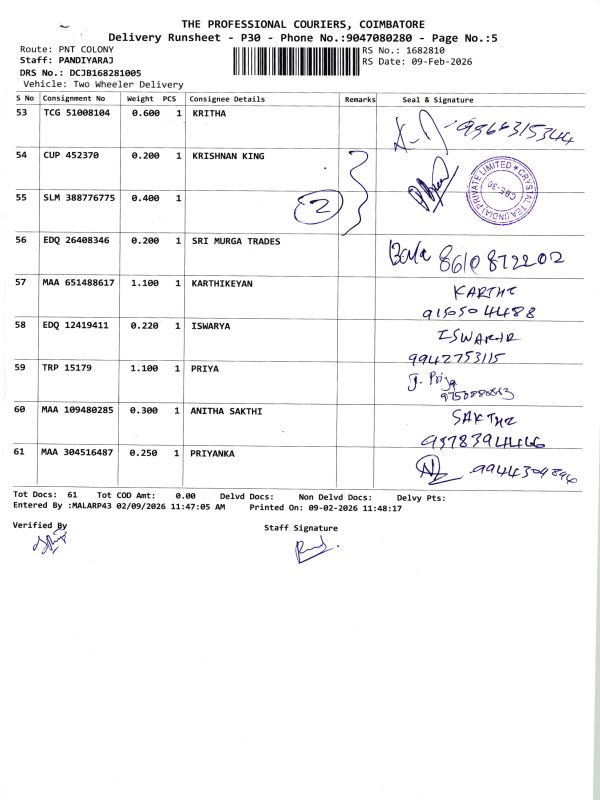 THE PROFESSIONAL COURIERS, COIMBATORE
Delivery Runsheet - P30 - Phone No.:9047080280 - Page No.:5
Route: PNT COLONY
RS No.: 1682810
Staff: PANDIYARAJ
RS Date: 09-Feb-2026
DRS No.: DCJB168281005
Vehicle: Two Wheeler Delivery
S No Consignment No Weight PCS Consignee Details Remarks Seal & Signature
53 TCG 51008104 0.600 1 KRITHA
54 CUP 452370 0.200 1 KRISHNAN KING
CRYSTAL TEA (INDIA) PRIVATE LIMITED
CBE-30
55 SLM 388776775 0.400 1 2
56 EDQ 26408346 0.200 1 SRI MURGA TRADES Bala 8610872202
57 MAA 651488617 1.100 1 KARTHIKEYAN KARTHI
9150504488
58 EDQ 12419411 0.220 1 ISWARYA ISWARIA
9942753115
59 TRP 15179 1.100 1 PRIYA J. Priya
60 MAA 109480285 0.300 1 ANITHA SAKTHI SAKTHI
61 MAA 304516487 0.250 1 PRIYANKA 9944304896
Tot Docs: 61 Tot COD Amt: 0.00 Delvd Docs: Non Delvd Docs: Delvy Pts:
Entered By :MALARP43 02/09/2026 11:47:05 AM Printed On: 09-02-2026 11:48:17
Verified By
Staff Signature